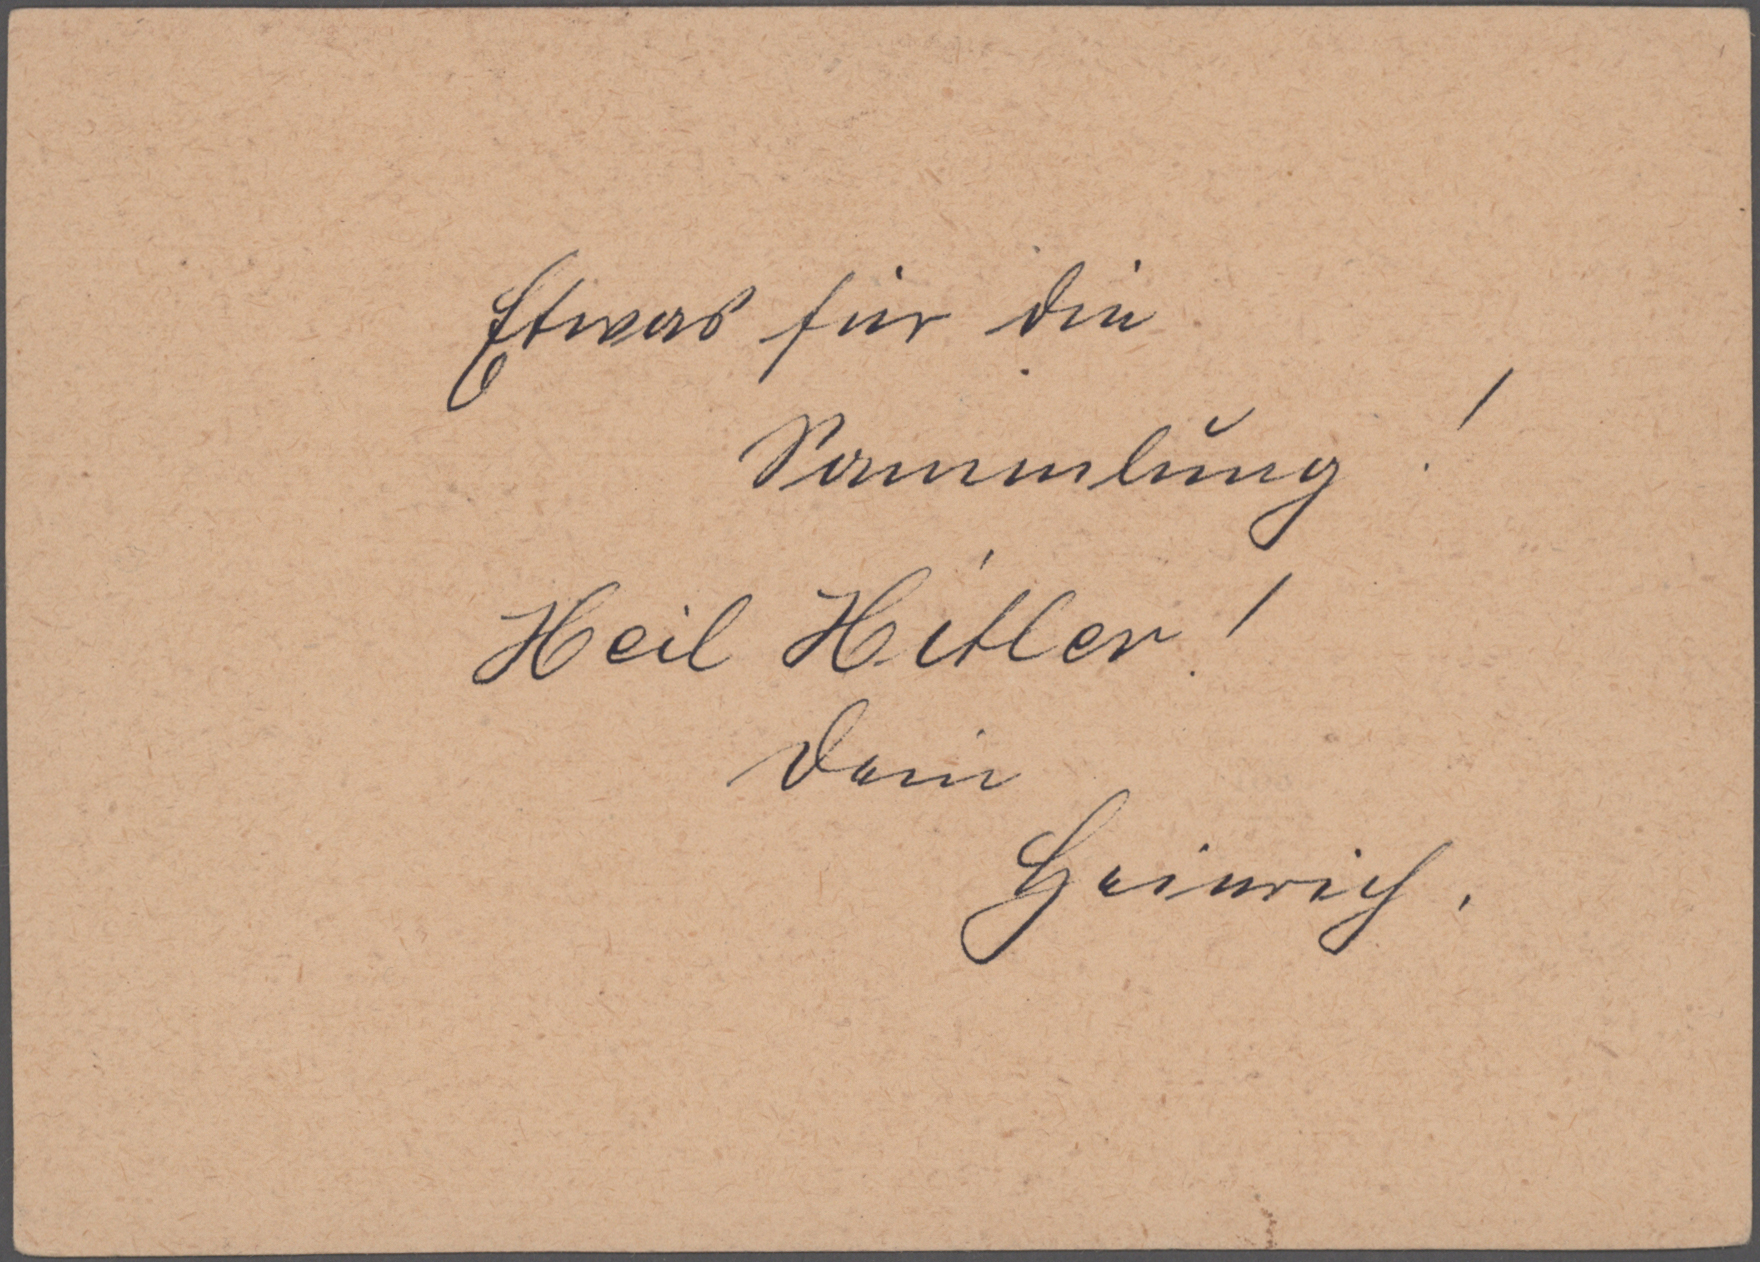 Etwas für die
Sammlung!
Heil Hitler!
Dein
Heinrich.